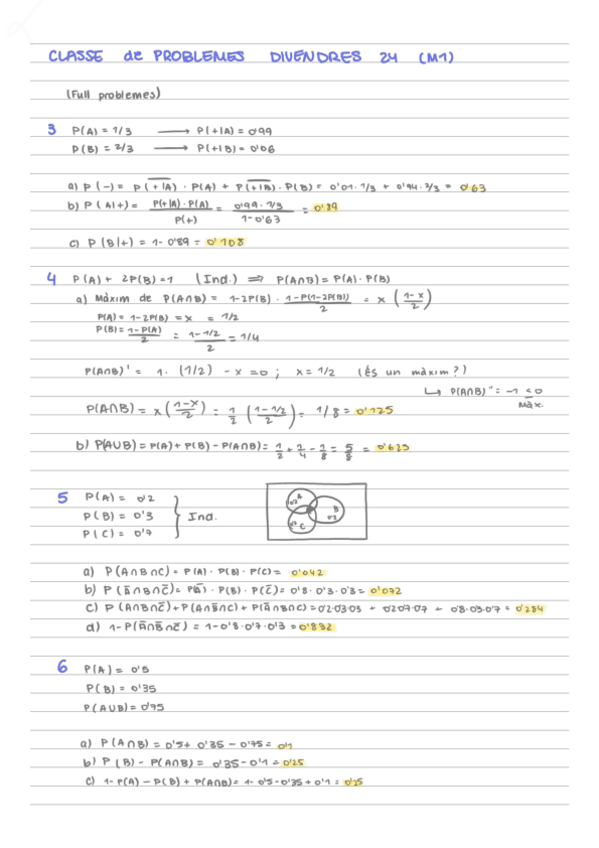 CLASSE de PROBLEMES DIVENDRES 24 (M1)
(Full problemes)
3 P(A) = 1/3 ⟶ P(+|A) = 0'99
P(B) = 2/3 ⟶ P(+|B) = 0'06
a) P(-) = P(\overline{+|A}) · P(A) + P(\overline{+|B}) · P(B) = 0'01 · 1/3 + 0'94 · 2/3 = 0'63
b) P(A|+) = \frac{P(+|A) · P(A)}{P(+)} = \frac{0'99 · 1/3}{1-0'63} = 0'89
c) P(B|+) = 1 - 0'89 = 0'108
4 P(A) + 2P(B) = 1 (Ind.) ⟹ P(A∩B) = P(A) · P(B)
a) Màxim de P(A∩B) = 1-2P(B) · \frac{1-P(1-2P(B))}{2} = x (\frac{1-x}{2})
P(A) = 1-2P(B) = x = 1/2
P(B) = \frac{1-P(A)}{2} = \frac{1-1/2}{2} = 1/4
P(A∩B)' = 1 · (1/2) - x = 0 ; x = 1/2 (és un màxim?)
↳ P(A∩B)'' = -1 < 0
Màx.
P(A∩B) = x (\frac{1-x}{2}) = \frac{1}{2} (\frac{1-1/2}{2}) = 1/8 = 0'125
b) P(A∪B) = P(A) + P(B) - P(A∩B) = \frac{1}{2} + \frac{1}{4} - \frac{1}{8} = \frac{5}{8} = 0'625
5 P(A) = 0'2
P(B) = 0'3 } Ind.
P(C) = 0'7
A
B
C
a) P(A∩B∩C) = P(A) · P(B) · P(C) = 0'042
b) P(Ā∩B∩C̄) = P(Ā) · P(B) · P(C̄) = 0'8 · 0'3 · 0'3 = 0'072
c) P(A∩B∩C̄) + P(A∩B̄∩C) + P(Ā∩B∩C) = 0'2·0'3·0'3 + 0'2·0'7·0'7 + 0'8·0'3·0'7 = 0'284
d) 1-P(Ā∩B̄∩C̄) = 1-0'8·0'7·0'3 = 0'832
6 P(A) = 0'5
P(B) = 0'35
P(A∪B) = 0'75
a) P(A∩B) = 0'5 + 0'35 - 0'75 = 0'1
b) P(B) - P(A∩B) = 0'35 - 0'1 = 0'25
c) 1 - P(A) - P(B) + P(A∩B) = 1 - 0'5 - 0'35 + 0'1 = 0'25